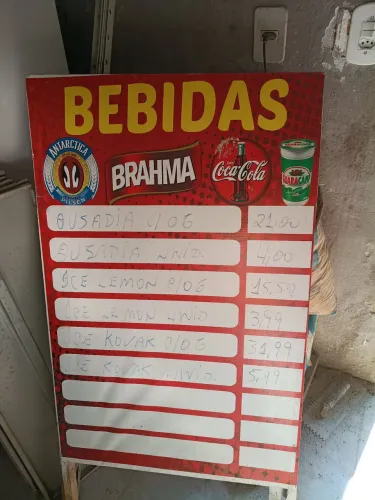 BEBIDAS
ANTARCTICA
PILSEN
BRAHMA
Coca-Cola
OUSADIA C/06 21,00
OUSADIA UNID 4,00
ICE LEMON C/06
ICE LEMON UNID 3,99
ICE KOVAK C/06 31,99
ICE KOVAK UNID 5,49